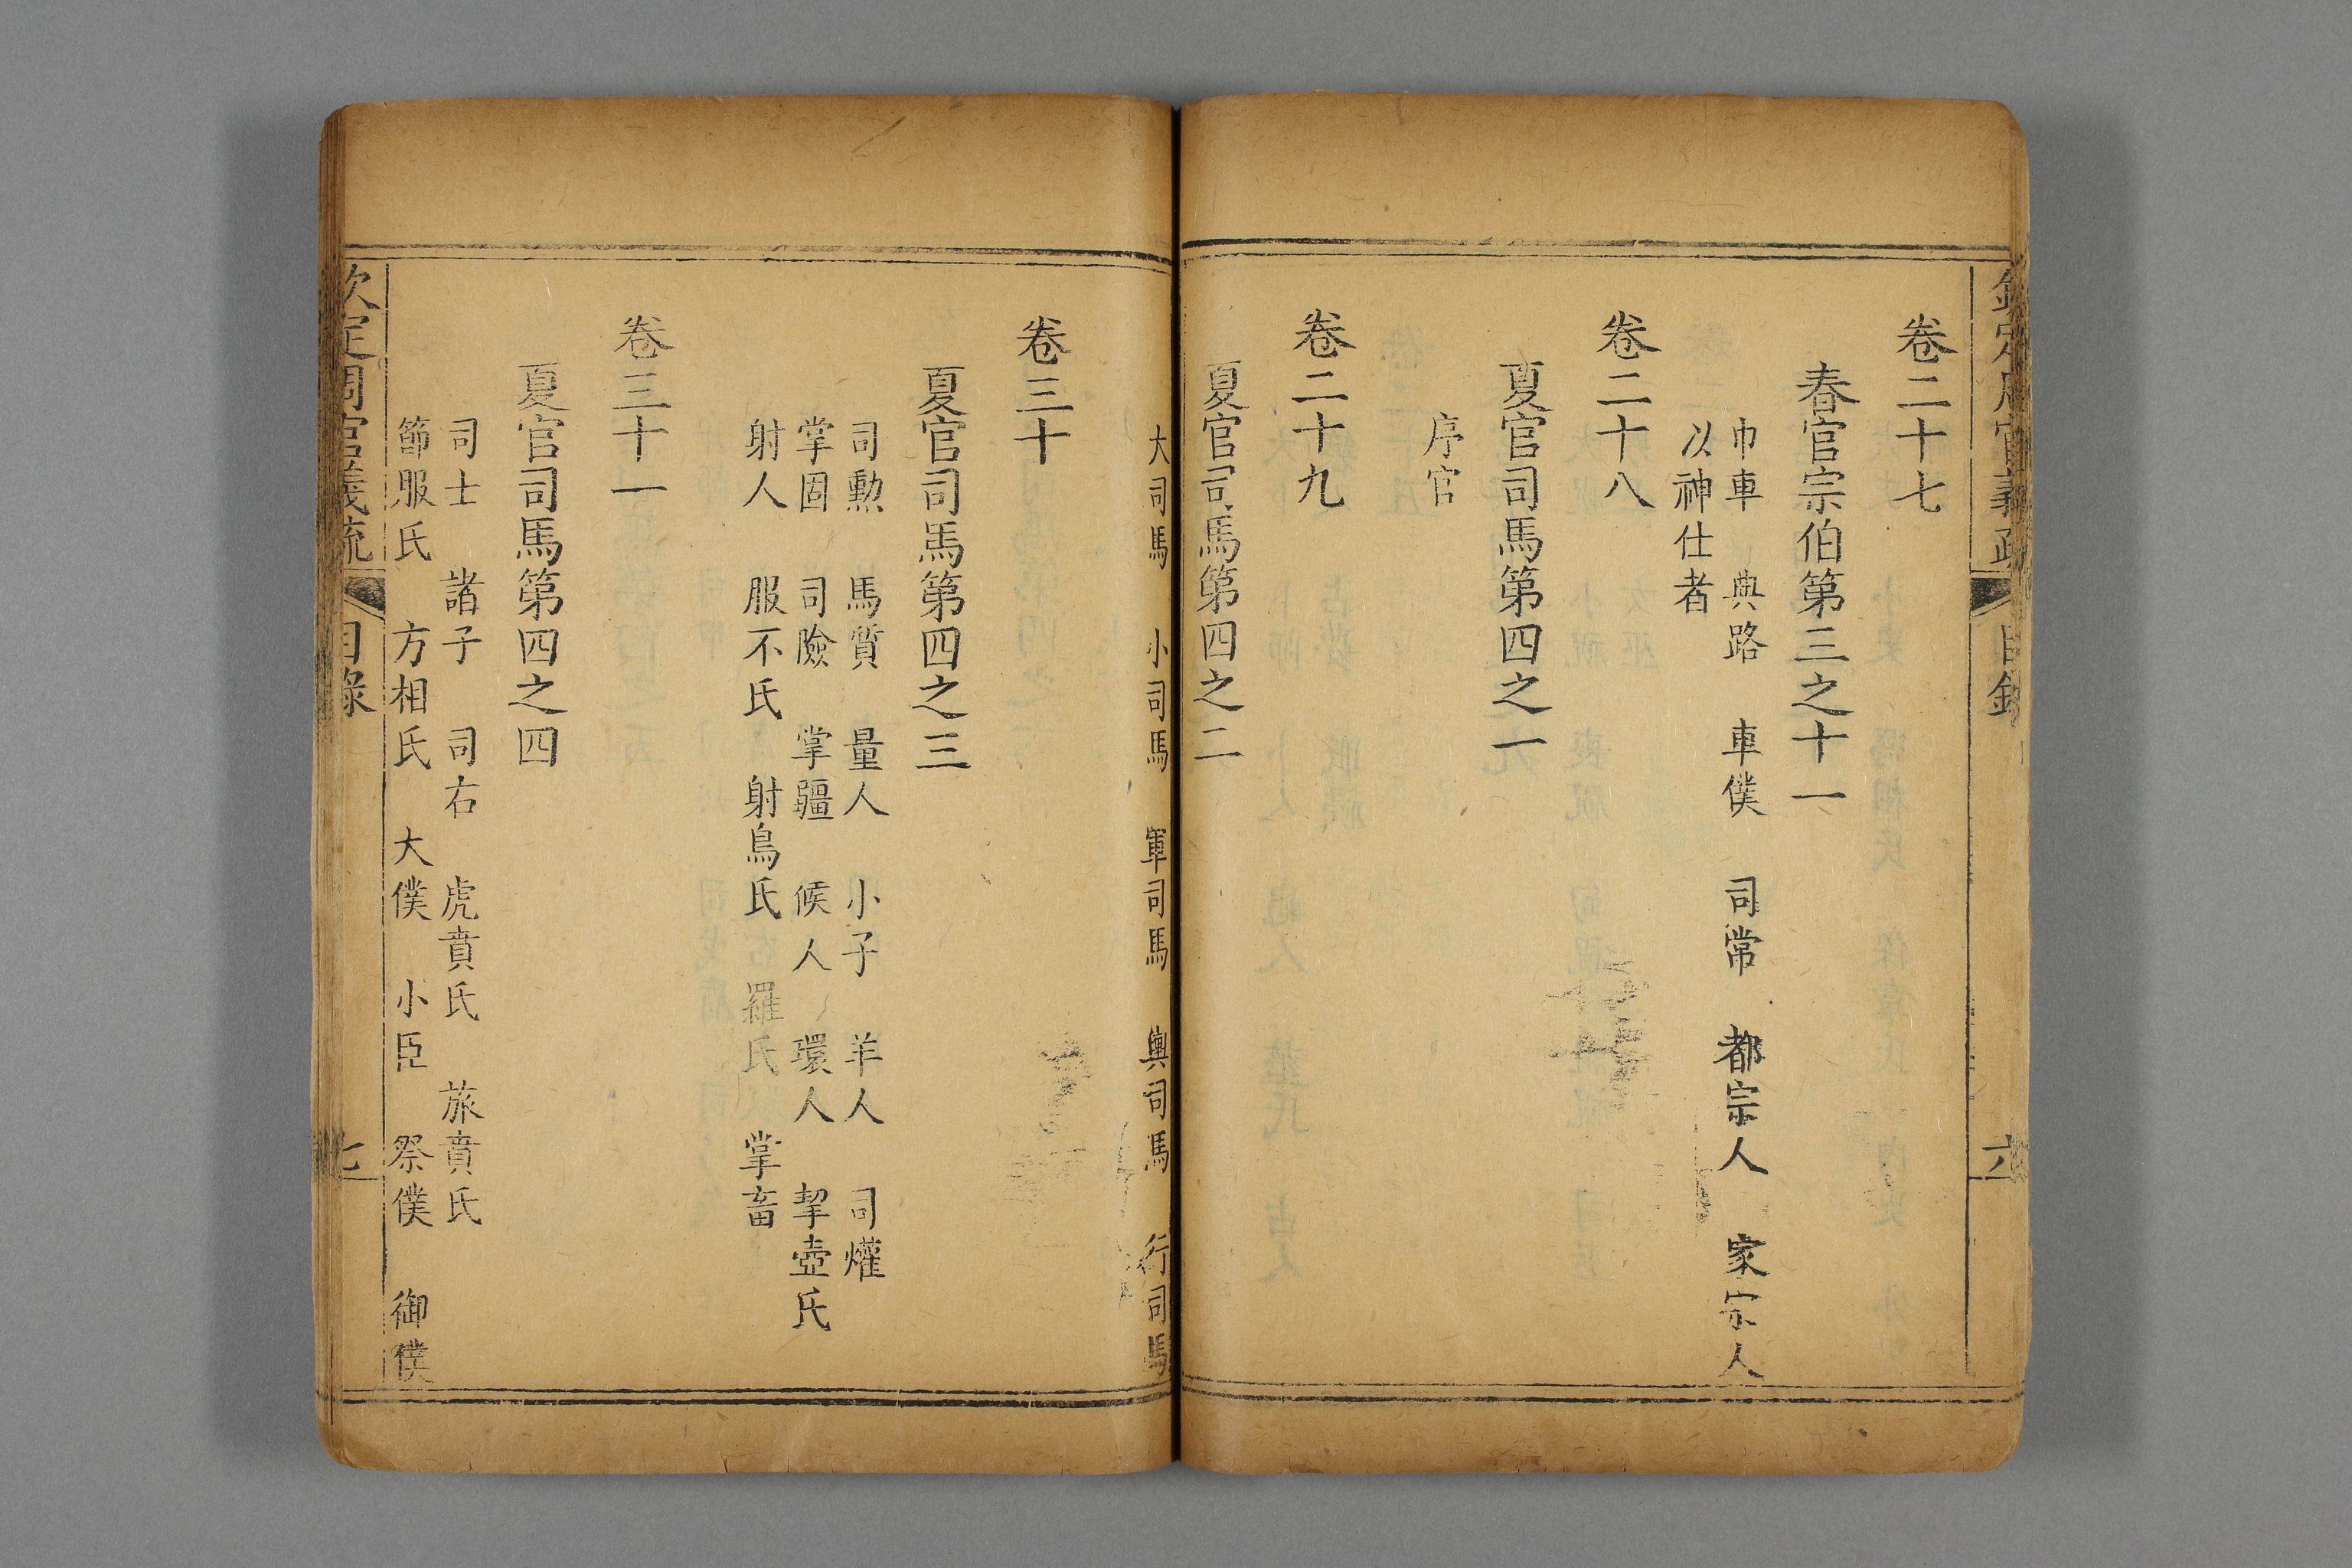 欽定周官義疏 目錄 六
卷二十七
春官宗伯第三之十一
巾車 典路 車僕 司常 都宗人 家宗人
以神仕者
卷二十八
夏官司馬第四之一
序官
卷二十九
夏官司馬第四之二
大司馬 小司馬 軍司馬 輿司馬 行司馬
卷三十
夏官司馬第四之三
司勳 馬質 量人 小子 羊人 司爟
掌固 司險 掌疆 候人 環人 挈壺氏
射人 服不氏 射鳥氏 羅氏 掌畜
卷三十一
夏官司馬第四之四
司士 諸子 司右 虎賁氏 旅賁氏
節服氏 方相氏 大僕 小臣 祭僕 御僕
欽定周官義疏 目錄 七